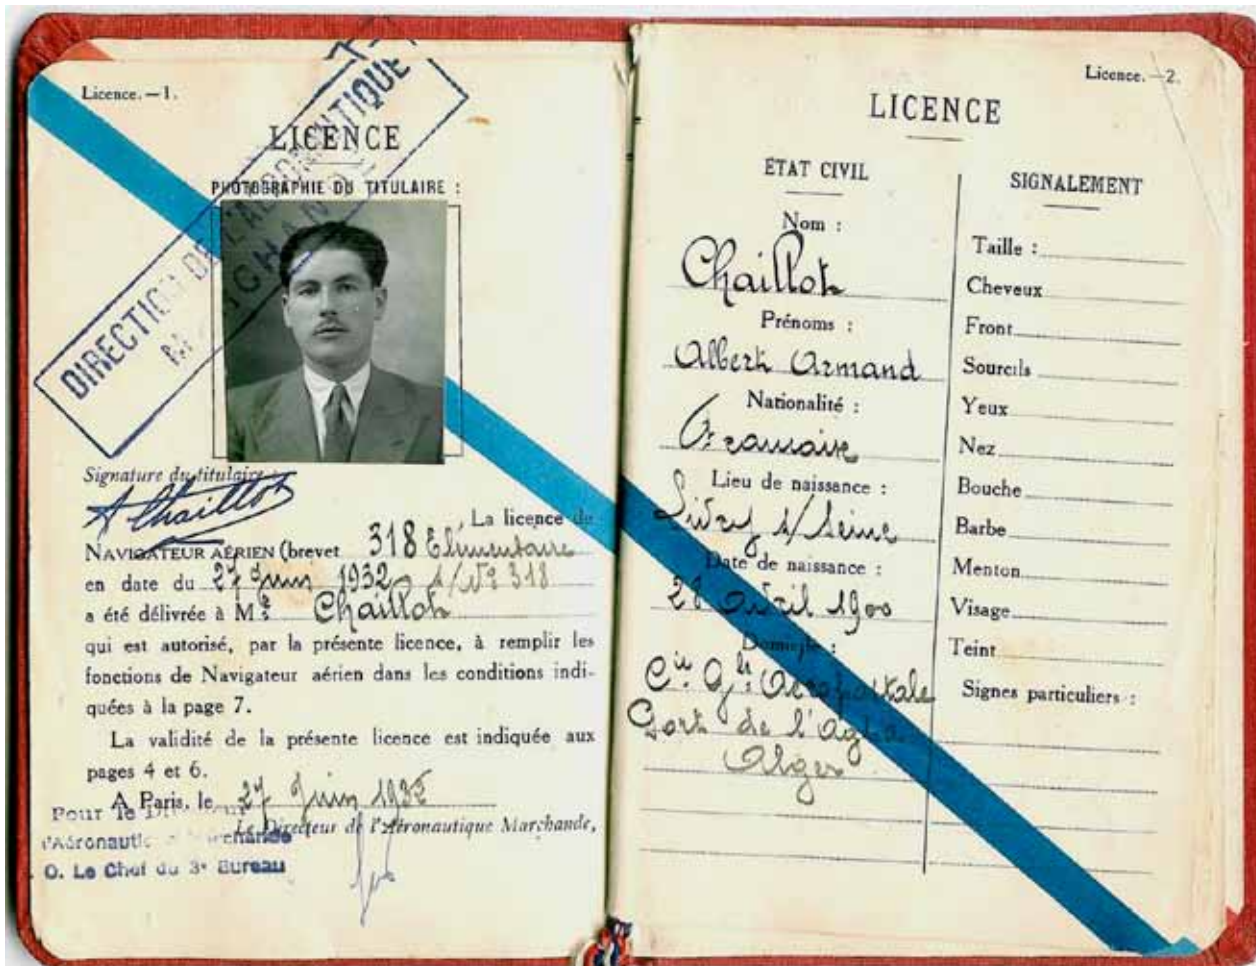 Licence. — 1.
LICENCE
PHOTOGRAPHIE DU TITULAIRE :
DIRECTION DE L'AÉRONAUTIQUE
MARCHANDE
Signature du titulaire :
A Chaillot
La licence de
NAVIGATEUR AÉRIEN (brevet 318 Elémentaire
en date du 27 Juin 1932 s/No 318
a été délivrée à Mr Chaillot
qui est autorisé, par la présente licence, à remplir les
fonctions de Navigateur aérien dans les conditions indi-
quées à la page 7.
La validité de la présente licence est indiquée aux
pages 4 et 6.
A Paris, le 27 Juin 1932
Le Directeur de l'Aéronautique Marchande,
Pour le Directeur
l'Aéronautique Marchande
O. Le Chef du 3e Bureau
Licence. — 2.
LICENCE
ÉTAT CIVIL
Nom :
Chaillot
Prénoms :
Albert Armand
Nationalité :
Française
Lieu de naissance :
Livry s/Seine
Date de naissance :
28 Avril 1900
Domicile :
Cie Gle Aéropostale
Port de l'Agha
Alger
SIGNALEMENT
Taille :
Cheveux
Front
Sourcils
Yeux
Nez
Bouche
Barbe
Menton
Visage
Teint
Signes particuliers :